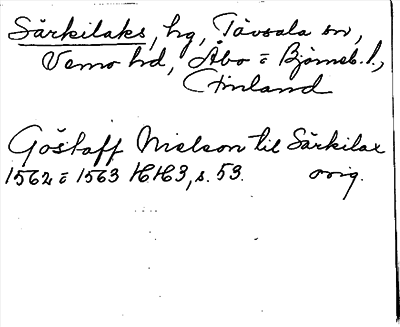 Särkilaks, hg, Tävsala sn,
Vemo hd, Åbo = Björneb. l.,
Finland
Göstaff Nielson til Särkilax
1562 = 1563 HH3, s. 53. orig.